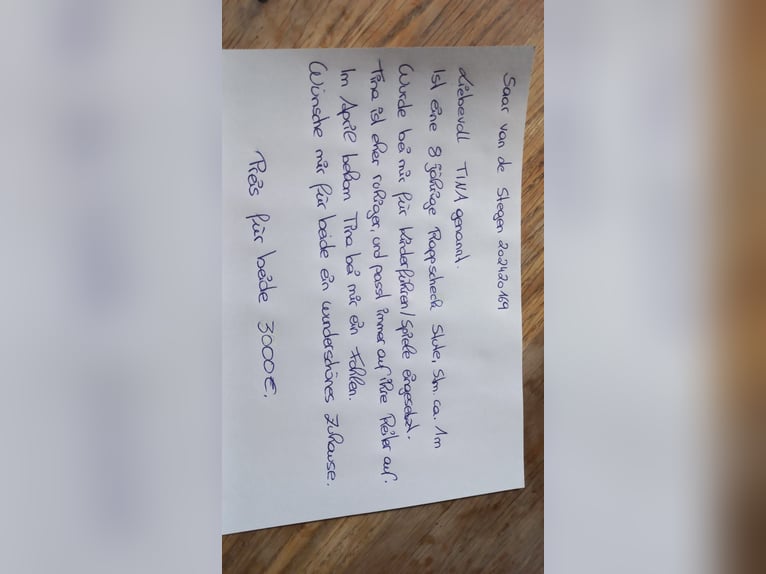 Saar van de Stegen 202420169
Liebevoll TINA genannt.
Ist eine 8 jährige Rappscheck Stute, Stm. ca. 1m
Wurde bei mir für Kinderführen/Spiele eingesetzt.
Tina ist eher ruhiger, und passt immer auf ihre Reiter auf.
Im April bekam Tina bei mir ein Fohlen.
Wünsche mir für beide ein wunderschönes Zuhause.
Preis für beide 3000€.